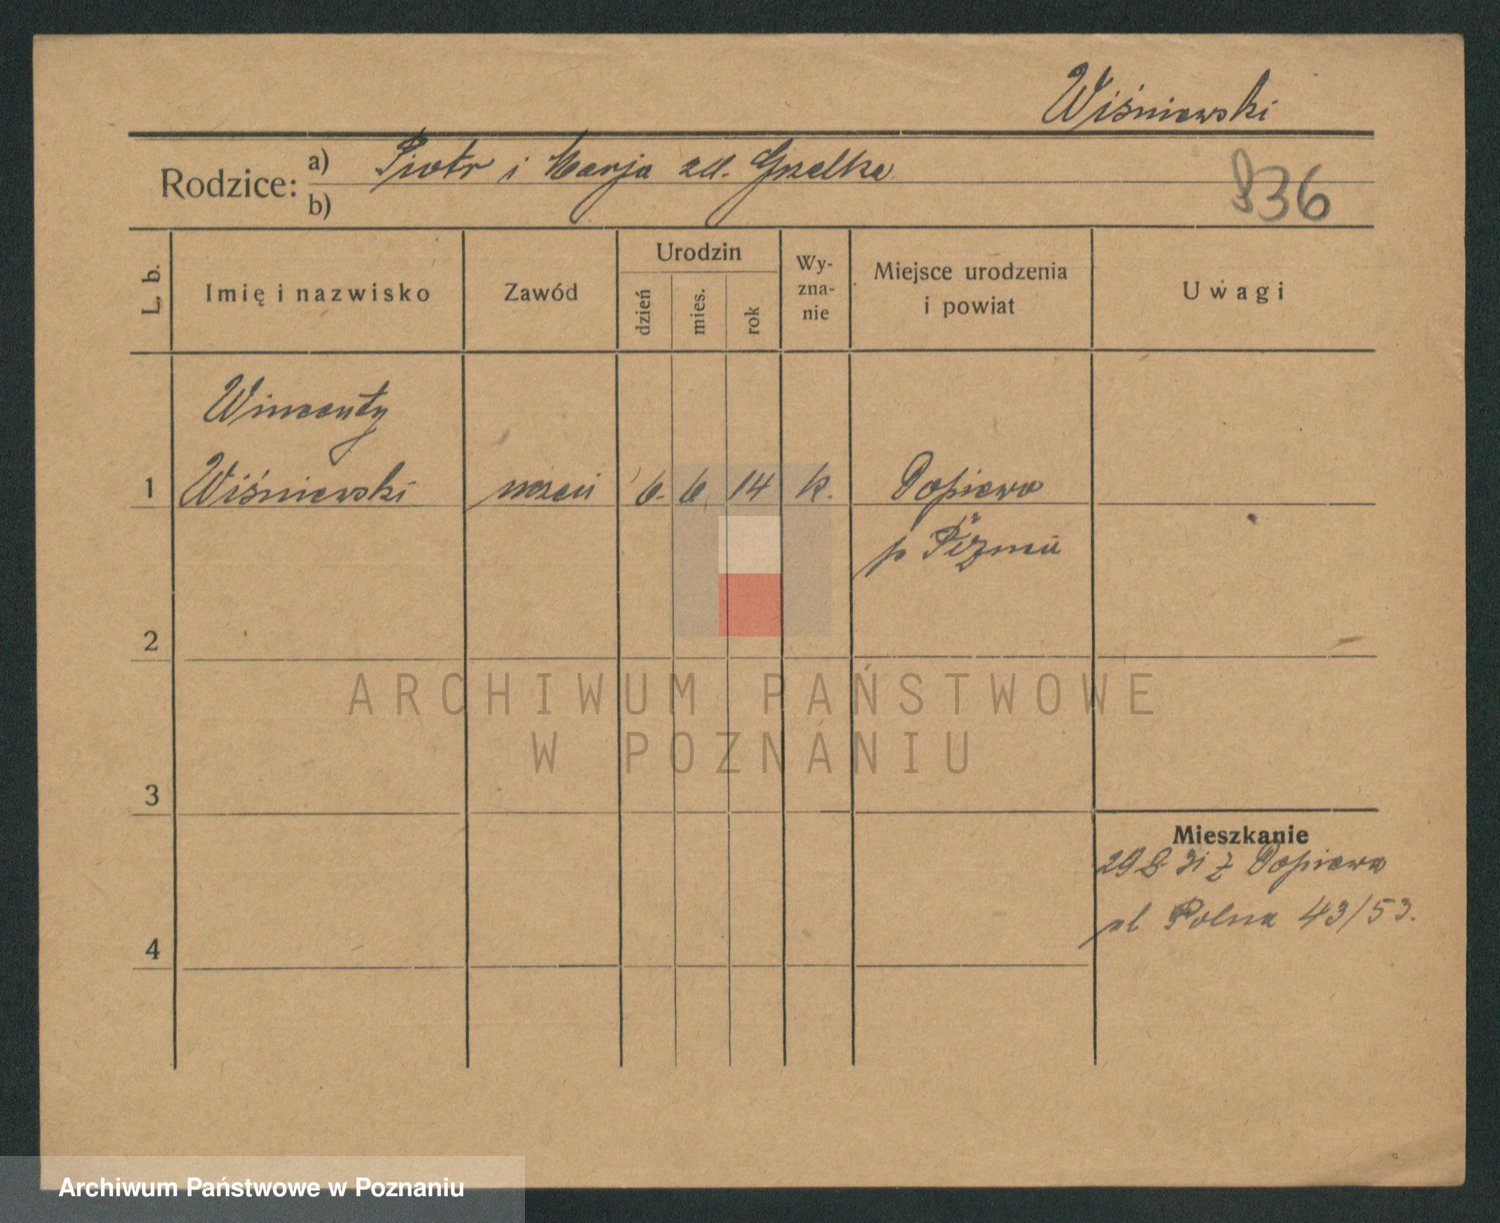 Wiśniewski
Rodzice: a) Piotr i Marja zd. Grzelka
b)
836
L. b. Imię i nazwisko Zawód Urodzin dzień mies. rok Wy-zna-nie Miejsce urodzenia i powiat Uwagi
Wincenty
1 Wiśniewski uczeń 6. 6. 14 k. Dopiewo
p Poznań
2
ARCHIWUM PAŃSTWOWE
W POZNANIU
3
Mieszkanie
29 8 31 z Dopiewa
ul Polna 43/53.
4
Archiwum Państwowe w Poznaniu